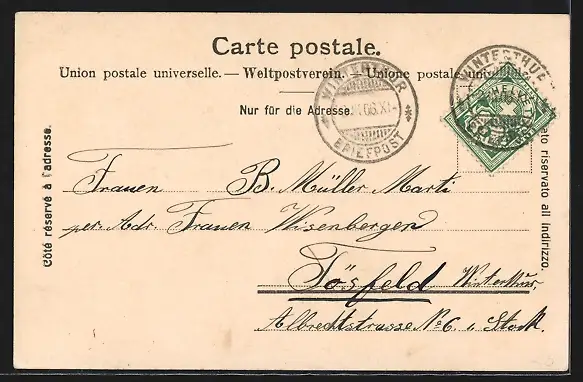 Carte postale.
Union postale universelle. — Weltpostverein. — Unione postale
Nur für die Adresse.
WINTERTHUR
BRIEFPOST
WINTERTHUR
Côté réservé à l'adresse.
lato riservato all indirizzo.
Frauen B. Müller Marti
per. Adr. Frauen Wisenberger
Tösfeld Winterthur
Albrechtstrasse No 6. Stock.